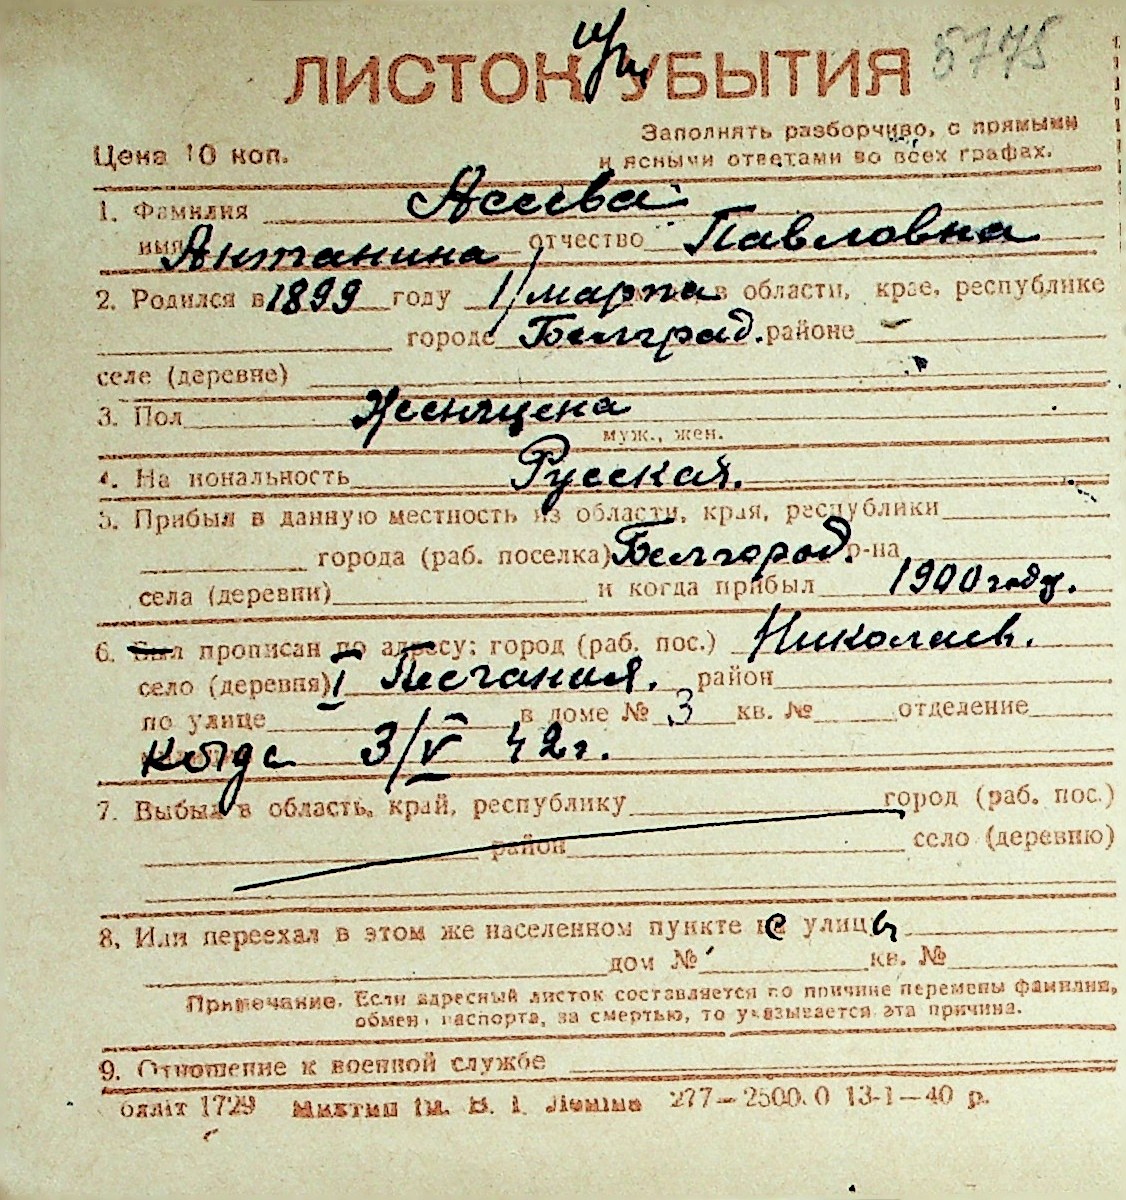 ЛИСТОК УБЫТИЯ 5775
Заполнять разборчиво, с прямыми
Цена 10 коп.
и ясными ответами во всех графах.
1. Фамилия Асеева
имя Антанина отчество Павловна
2. Родился в 1899 году 1/марта в области, крае, республике
городе Белград. районе
селе (деревне)
3. Пол Женщена
муж., жен.
4. На иональность Русская.
5. Прибыл в данную местность из области, края, республики
города (раб. поселка) Белгород. р-на
села (деревни) и когда прибыл 1900 году.
6. Был прописан по адресу: город (раб. пос.) Николаев.
село (деревня) I Песчания. район
по улице в доме № 3 кв. № отделение
когда 3/V 42 г.
7. Выбыл в область, край, республику город (раб. пос.)
район село (деревню)
8. Или переехал в этом же населенном пункте с улицы
дом № кв. №
Примечание. Если адресный листок составляется по причине перемены фамилии,
обмен паспорта, за смертью, то указывается эта причина.
9. Отношение к военной службе
1729 ім. В. І. Леніна 277—2500.0 13-1—40 р.